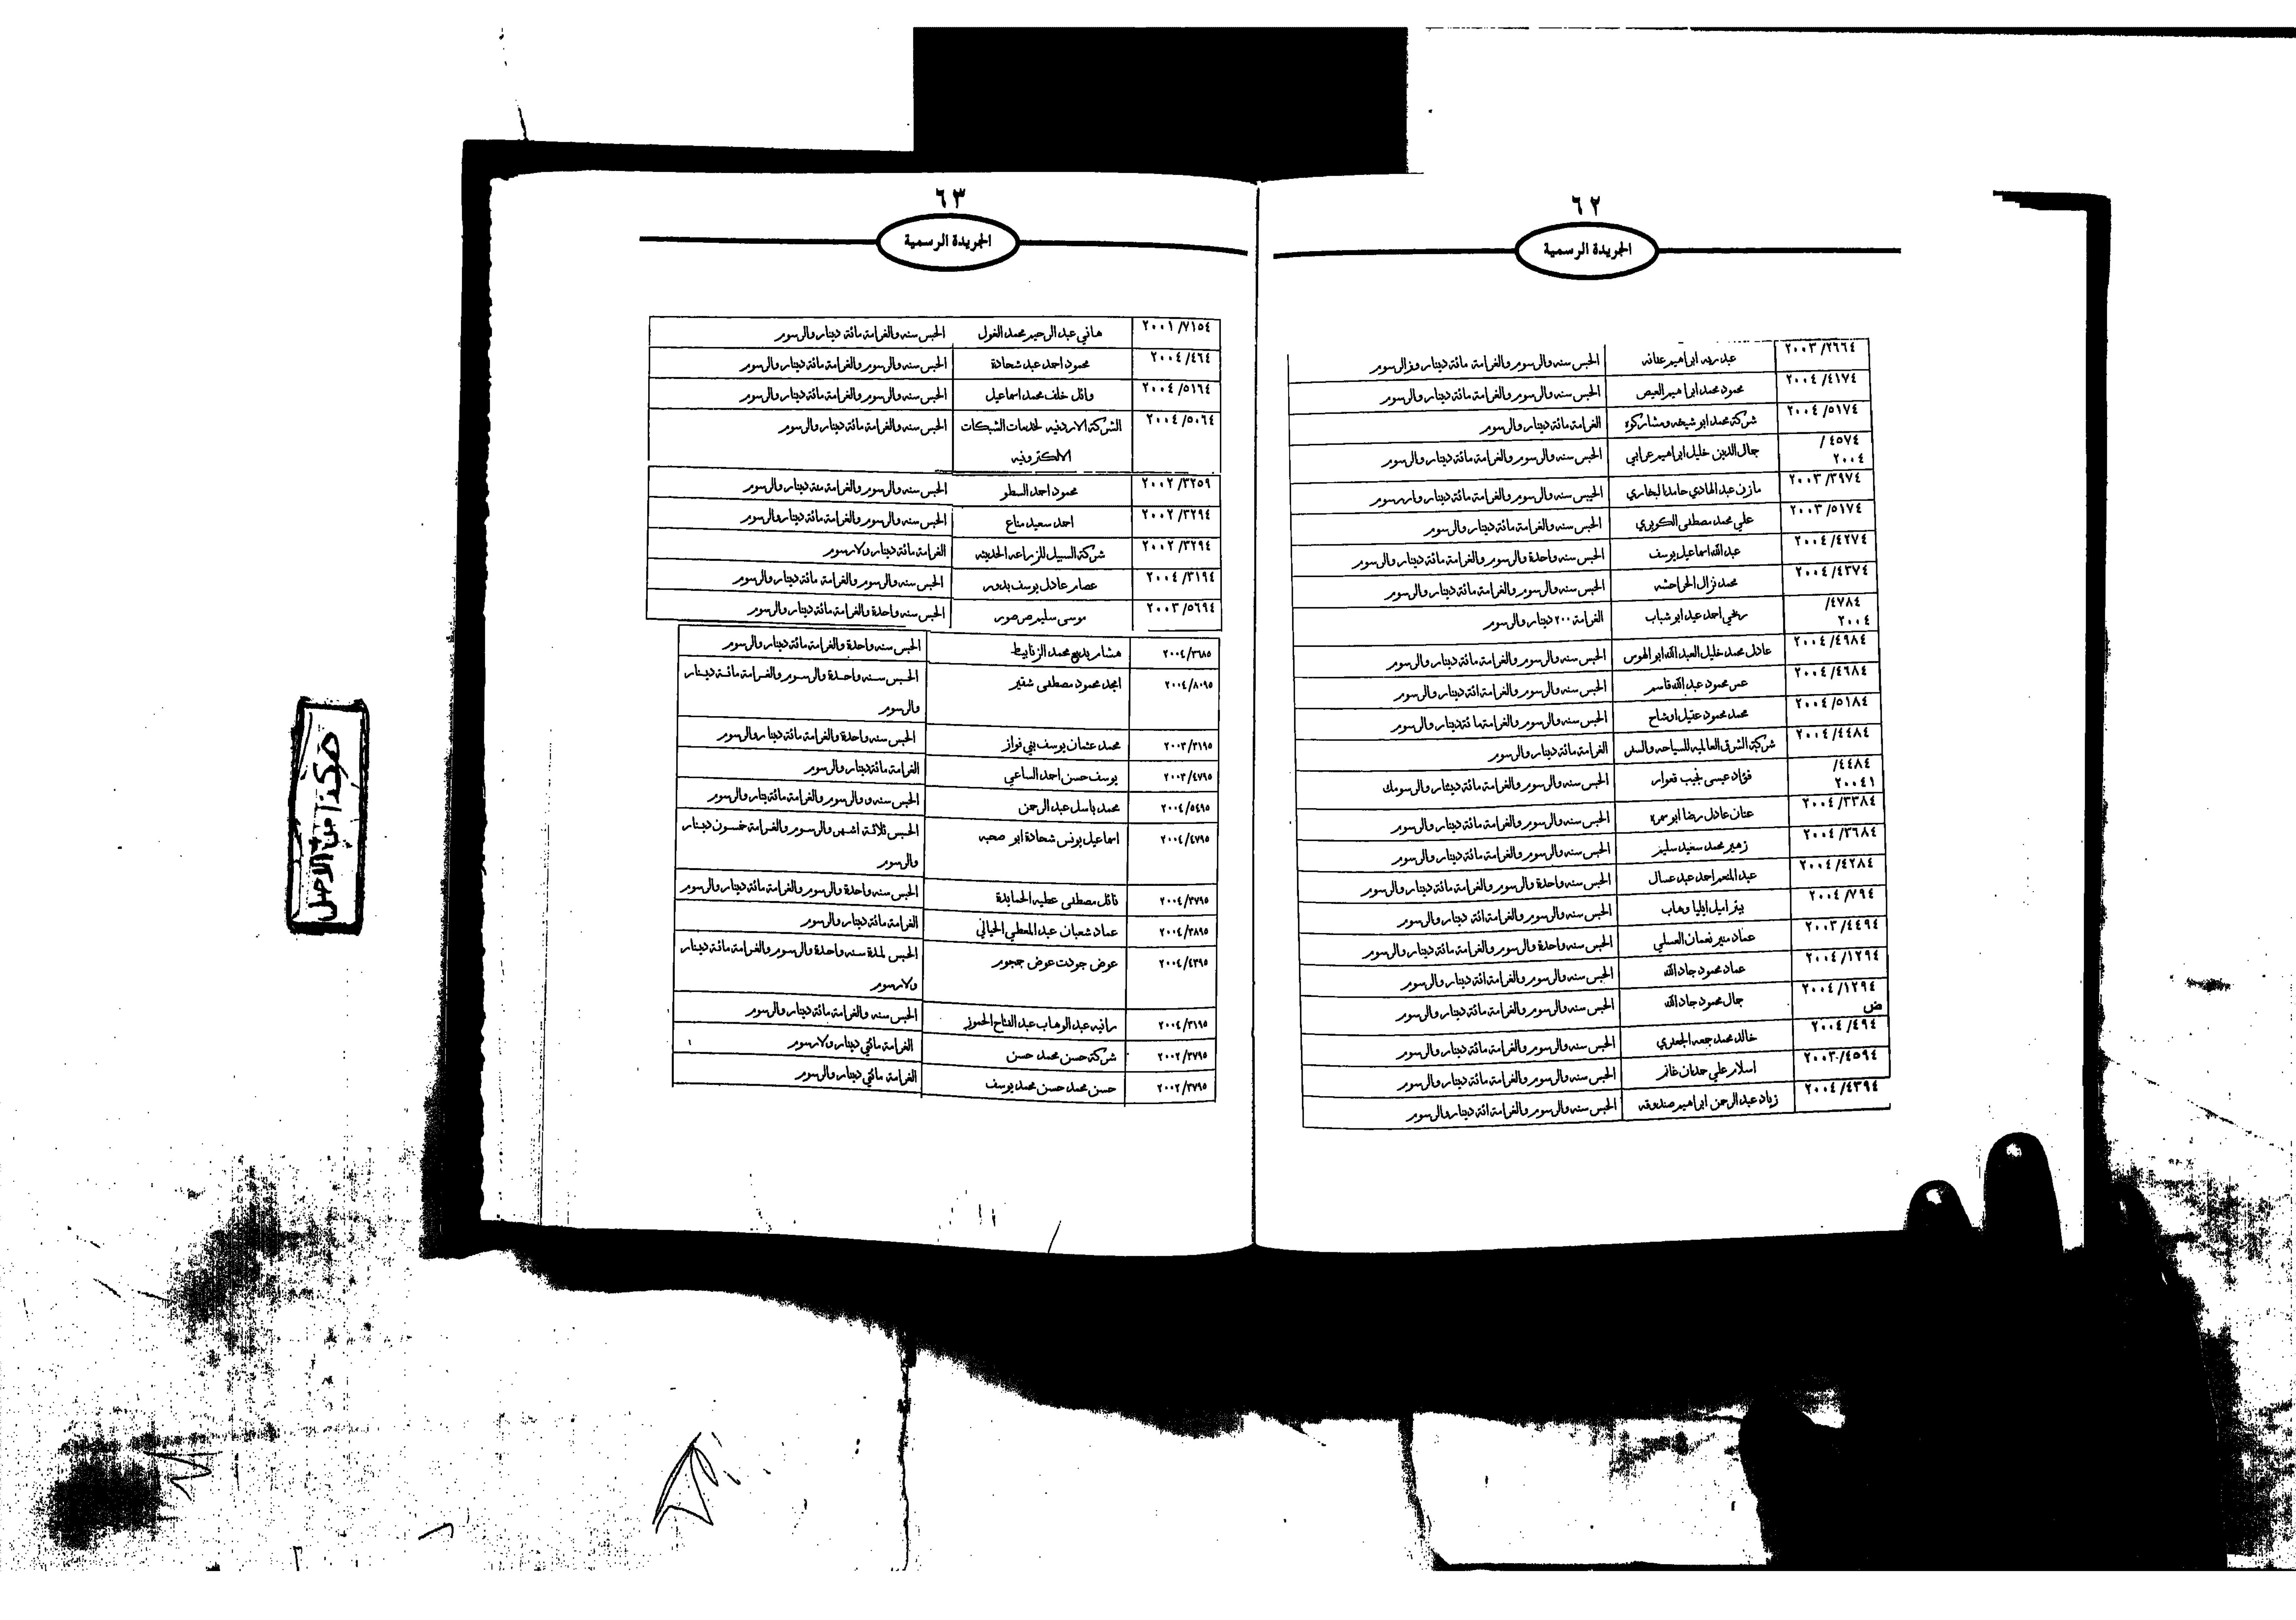 ٦٢
الجريدة الرسمية
٢٠٠٣/٢٦٦٤ عبد ربه ابراهيم عنانه الحبس سنه والرسوم والغرامة مائة دينار وزالرسوم
٢٠٠٤/٤١٧٤ محمود محمد ابراهيم العيص الحبس سنه والرسوم والغرامة مائة دينار والرسوم
٢٠٠٤/٥١٧٤ شركة محمد ابو شيخه ومشاركوه الغرامة مائة دينار والرسوم
/٤٥٧٤ جمال الدين خليل ابراهيم عرابي الحبس سنه والرسوم والغرامة مائة دينار والرسوم
٢٠٠٤
٢٠٠٣/٣٩٧٤ مازن عبد الهادي حامد البخاري الحبس سنه والرسوم والغرامة مائة دينار وارسوم
٢٠٠٣/٥١٧٤ علي محمد مصطفى الكويري الحبس سنه والغرامة مائة دينار والرسوم
٢٠٠٤/٤٢٧٤ عبد الله اسماعيل يوسف الحبس سنه واحدة والرسوم والغرامة مائة دينار والرسوم
٢٠٠٤/٤٣٧٤ محمد نزال الحراحشه الحبس سنه والرسوم والغرامة مائة دينار والرسوم
/٤٧٨٤ ربحي احمد عيد ابو شباب الغرامة ٢٠٠ دينار والرسوم
٢٠٠٤
٢٠٠٤/٤٩٨٤ عادل محمد خليل العبد الله ابو الهوس الحبس سنه والرسوم والغرامة مائة دينار والرسوم
٢٠٠٤/٤٦٨٤ عمر محمود عبد الله قاسم الحبس سنه والرسوم والغرامة ائة دينار والرسوم
٢٠٠٤/٥١٨٤ محمد محمود عقيل اوشاح الحبس سنه والرسوم والغرامة مائة دينار والرسوم
٢٠٠٤/٤٤٨٤ شركة الشرق العالمية للسياحه والسفر الغرامة مائة دينار والرسوم
/٤٤٨٤ فؤاد عيسى نجيب قعوار الحبس سنه والرسوم والغرامة مائة دينار والرسومك
٢٠٠٤١
٢٠٠٤/٣٣٨٤ عنان عادل رضا ابو سمره الحبس سنه والرسوم والغرامة مائة دينار والرسوم
٢٠٠٤/٣٦٨٤ زهير محمد سعيد سليم الحبس سنه والرسوم والغرامة مائة دينار والرسوم
٢٠٠٤/٤٢٨٤ عبد المنعم احمد عبد عسال الحبس سنه واحدة والرسوم والغرامة مائة دينار والرسوم
٢٠٠٤/٧٩٤ بيتر اميل ايليا وهاب الحبس سنه والرسوم والغرامة ائة دينار والرسوم
٢٠٠٣/٤٤٩٤ عماد منير نعمان العسلي الحبس سنه واحدة والرسوم والغرامة مائة دينار والرسوم
٢٠٠٤/١٢٩٤ عماد محمود جاد الله الحبس سنه والرسوم والغرامة ائة دينار والرسوم
٢٠٠٤/١٢٩٤ جمال محمود جاد الله الحبس سنه والرسوم والغرامة مائة دينار والرسوم
ض
٢٠٠٤/٤٩٤ خالد محمد جمعه الجعبري الحبس سنه والرسوم والغرامة مائة دينار والرسوم
٢٠٠٣/٤٥٩٤ اسلام علي حمدان غانم الحبس سنه والرسوم والغرامة مائة دينار والرسوم
٢٠٠٤/٤٣٩٤ زياد عبد الرحمن ابراهيم صندوقه الحبس سنه والرسوم والغرامة ائة دينار والرسوم
٦٣
الجريدة الرسمية
٢٠٠١/٧١٥٤ هاني عبد الرحيم محمد الغول الحبس سنه والغرامة مائة دينار والرسوم
٢٠٠٤/٤٦٤ محمود احمد عبد شحادة الحبس سنه والرسوم والغرامة مائة دينار والرسوم
٢٠٠٤/٥١٦٤ وائل خلف محمد اسماعيل الحبس سنه والرسوم والغرامة مائة دينار والرسوم
٢٠٠٤/٥٠٦٤ الشركة الاردنيه لخدمات الشبكات الحبس سنه والغرامة مائة دينار والرسوم
الالكترونيه
٢٠٠٢/٣٢٥٩ محمود احمد السطو الحبس سنه والرسوم والغرامة مئة دينار والرسوم
٢٠٠٢/٣٢٩٤ احمد سعيد مناع الحبس سنه والرسوم والغرامة مائة دينار والرسوم
٢٠٠٢/٣٢٩٤ شركة السبيل للزراعه الحديثه الغرامة مائة دينار ولارسوم
٢٠٠٤/٣١٩٤ عصام عادل يوسف بدور الحبس سنه والرسوم والغرامة مائة دينار والرسوم
٢٠٠٣/٥٦٩٤ موسى سليم صرصور الحبس سنه واحدة والغرامة مائة دينار والرسوم
٢٠٠٤/٣٦٨٥ هشام بديع محمد الزنابيط الحبس سنه واحدة والغرامة مائة دينار والرسوم
٢٠٠٤/٨٠٩٥ امجد محمود مصطفى شقير الحبس سنه واحدة والرسوم والغرامة مائة دينار
والرسوم
٢٠٠٣/٣١٩٥ محمد عثمان يوسف بني فواز الحبس سنه واحدة والغرامة مائة دينار والرسوم
٢٠٠٣/٤٧٩٥ يوسف حسن احمد الساعي الغرامة مائة دينار والرسوم
٢٠٠٤/٥٤٩٥ محمد باسل عبد الرحمن الحبس سنه و والرسوم والغرامة مائة ينار والرسوم
٢٠٠٤/٤٧٩٥ اسماعيل يونس شحادة ابو صحبه الحبس ثلاثة اشهر والرسوم والغرامة خمسون دينار
والرسوم
٢٠٠٤/٣٧٩٥ نائل مصطفى عطيه الحمايدة الحبس سنه واحدة والرسوم والغرامة مائة دينار والرسوم
٢٠٠٤/٣٨٩٥ عماد شعبان عبد المعطي الحيالي الغرامة مائة دينار والرسوم
٢٠٠٤/٤٣٩٥ عوض جودت عوض جمجوم الحبس لمدة سنه واحدة والرسوم والغرامة مائة دينار
ولارسوم
٢٠٠٤/٣١٩٥ رانيه عبد الوهاب عبد الفتاح الحموز الحبس سنه والغرامة مائة دينار والرسوم
٢٠٠٢/٣٧٩٥ شركة حسن محمد حسن الغرامة مائتي دينار ولارسوم
٢٠٠٢/٣٧٩٥ حسن محمد حسن محمد يوسف الغرامة مائتي دينار والرسوم
هكذا من الاصل